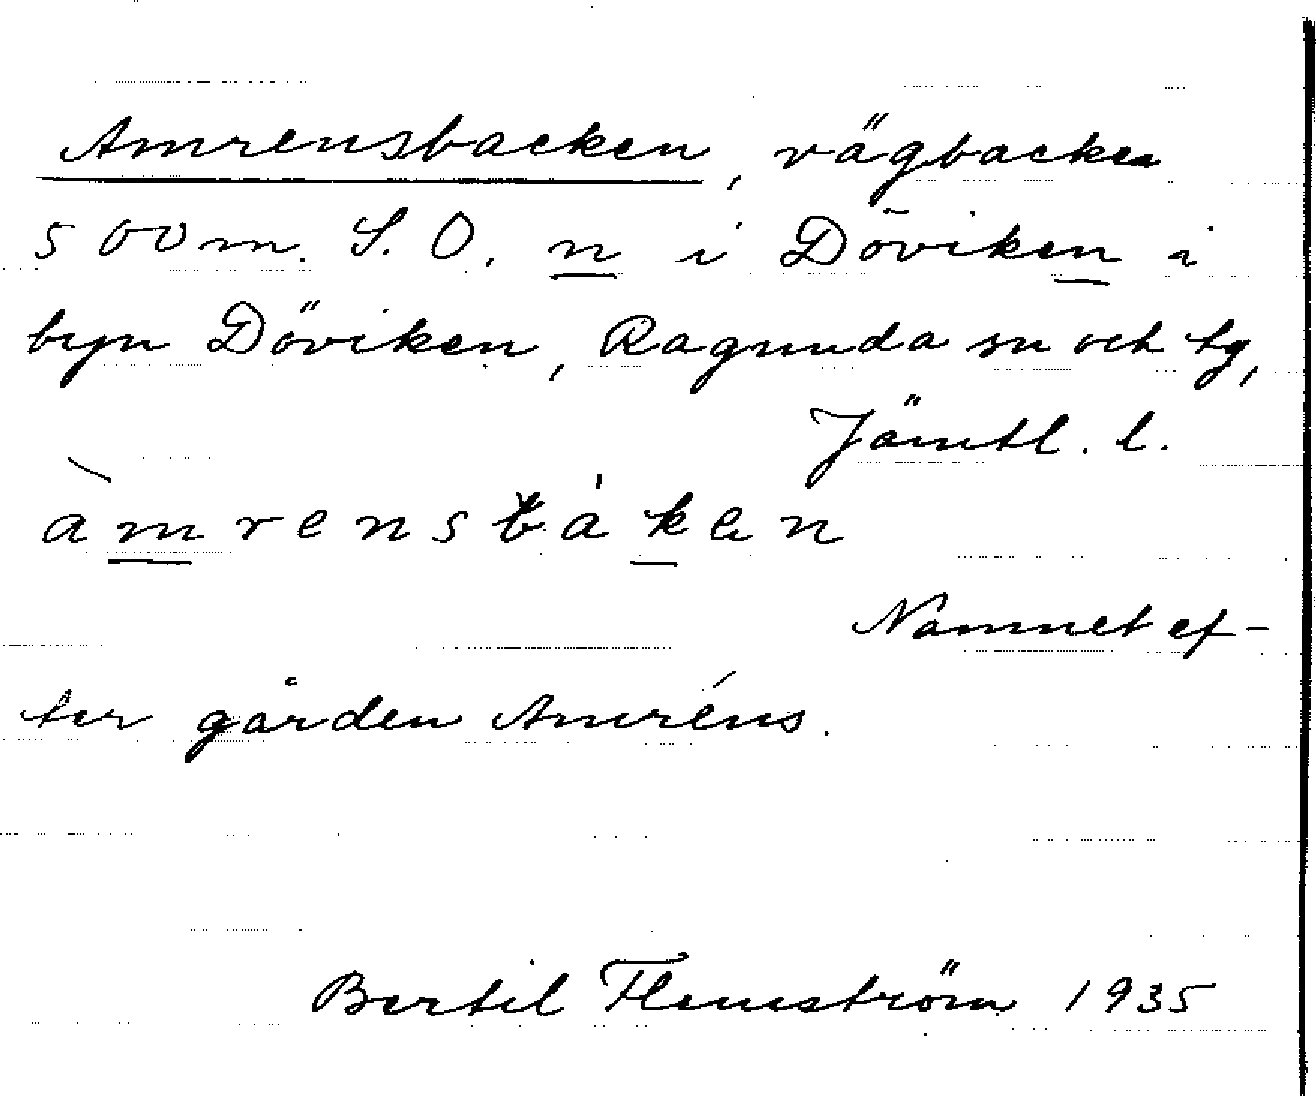 Amrensbacken, vägbacke
500 m. S.O. n i Döviken i
byn Döviken, Ragunda sn och tg,
Jämtl. l.
àmrensbáken
Namnet ef-
ter gården Amréns.
Bertil Flemström 1935